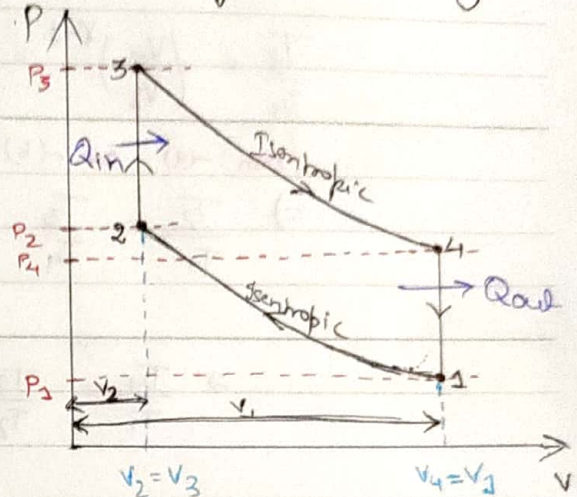 P
P3
3
Qin
Isentropic
P2
2
P4
4
Isentropic
Qout
P1
1
V2
V1
V2=V3
V4=V1
V